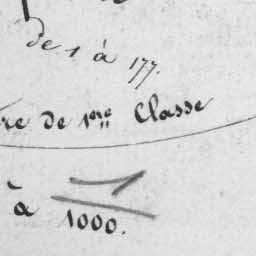 de 1 à 177.
re de 1ère Classe
à 1
1000.